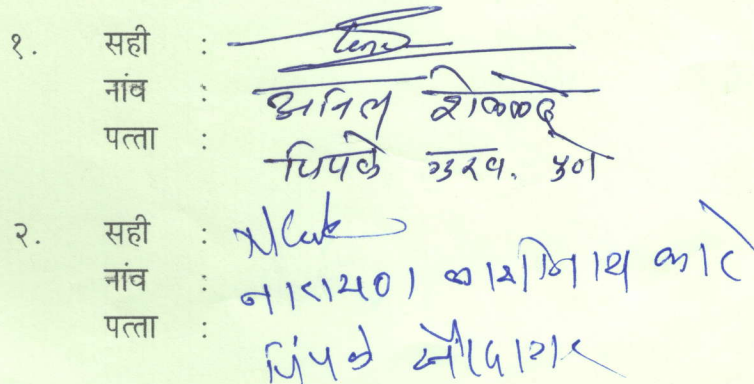 १. सही :
नांव : अनिल
पत्ता : पिंपळे गुरव. पुणे
२. सही :
नांव : नारायण काशिनाथ काटे
पत्ता : पिंपळे सौदागर